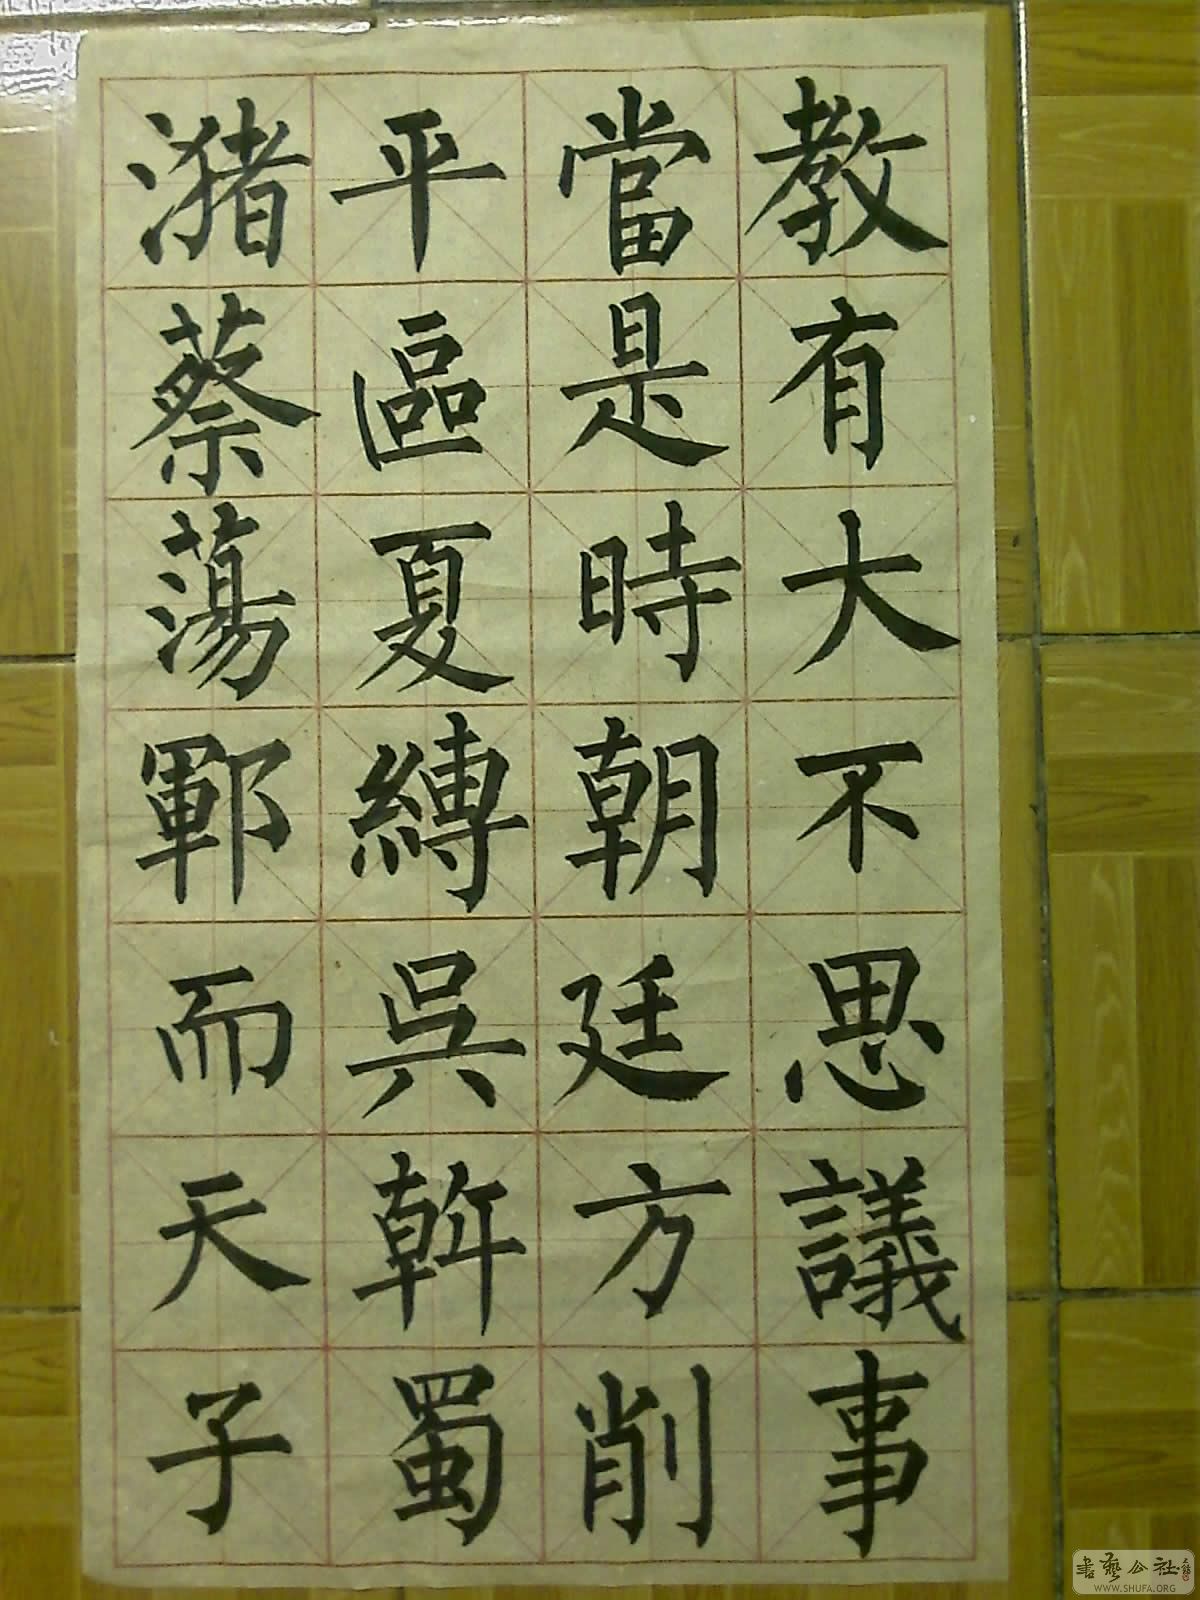 教有大不思議事
當是時朝廷方削
平區夏縛吳斡蜀
瀦蔡蕩鄆而天子
書藝公社
WWW.SHUFA.ORG